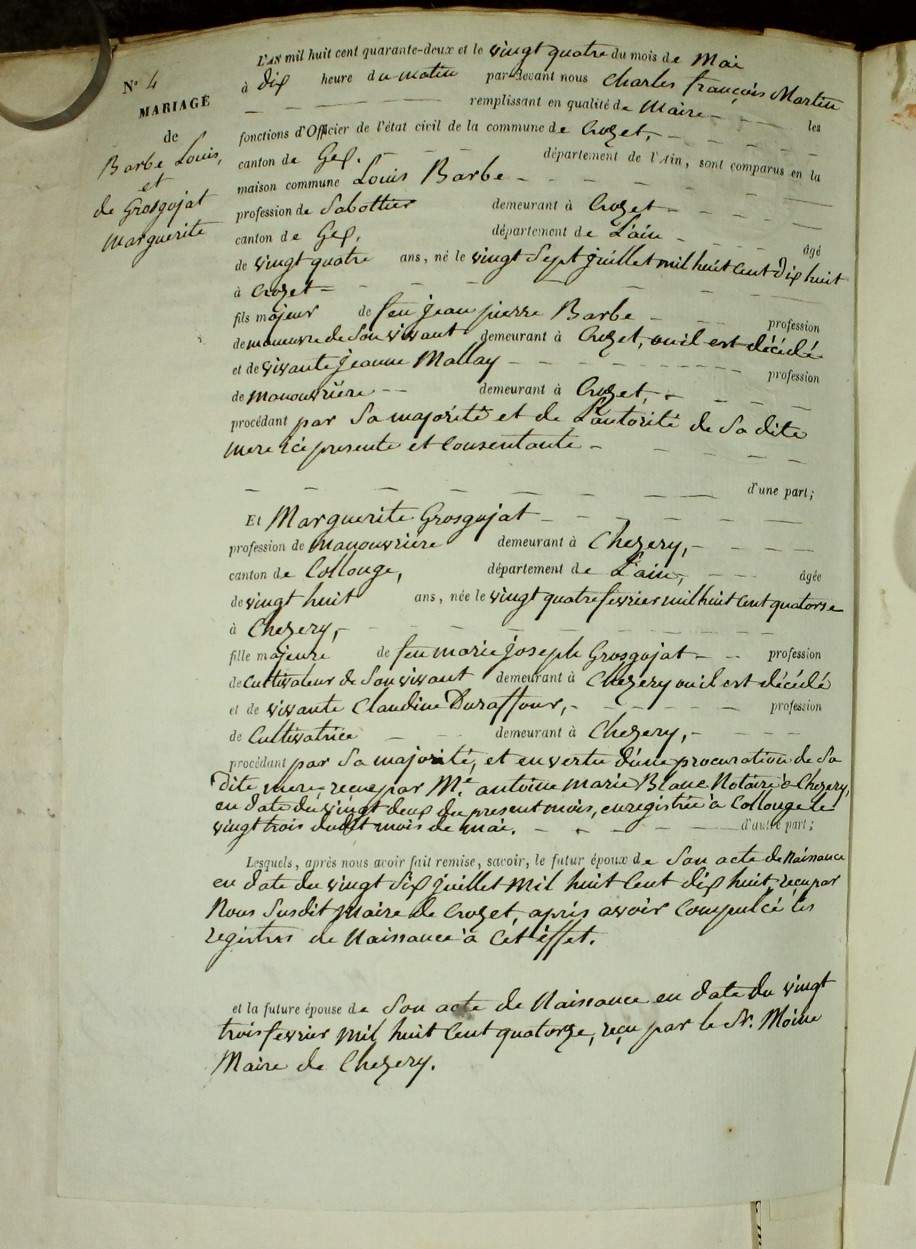 N° 4
MARIAGE
de
Barbe Louis,
et
de Grosgojat
Marguerite
L'AN mil huit cent quarante-deux et le vingt quatre du mois de Mai
à dix heure du matin par-devant nous Charles françois Martin
remplissant en qualité de Maire les
fonctions d'Officier de l'état civil de la commune de Crozet,
canton de Gex. département de l'Ain, sont comparus en la
maison commune Louis Barbe
profession de Sabottier demeurant à Crozet
canton de Gex, département de L'ain âgé
de vingt quatre ans, né le vingt Sept juillet mil huit Cent dix huit
à Crozet
fils majeur de feu jean pierre Barbe profession
de manuvre de Son vivant demeurant à Crozet, ou il est décédé
et de vivante jeanne Mallay profession
de Manouvrière demeurant à Crozet,
procédant par Sa majorité et de L'autorité de Sa dite
mere ici presente et Consentante
d'une part;
Et Marguerite Grosgojat
profession de Manouvriere demeurant à Chezery,
canton de Collonge, département de L'ain, âgée
de vingt huit ans, née le vingt quatre fevrier mil huit Cent quatorse
à Chezery,
fille majeure de feu marie joseph Grosgojat profession
de Cultivateur de Son vivant demeurant à Chezery ou il est décédé
et de vivante Claudine Duraffour, profession
de Cultivatrice demeurant à Chezery,
procédant par Sa majorité, et en vertu d'une procuration de Sa
dite mere, recue par Me. antoine marie Blanc Notaire à Chezery,
en date du vingt deux du present mois, enregistrée à Collonge le
vingt trois dudit mois de mai. d'autre part;
Lesquels, après nous avoir fait remise, savoir, le futur époux de Son acte de Naissance
en date du vingt Six juillet Mil huit Cent dix huit, recu par
Nous Susdit Maire de Crozet, après avoir Compulcé les
registres de Naissance à Cet éffet.
et la future épouse de Son acte de Naissance en date du vingt
trois fevrier Mil huit Cent quatorze, reçu par le Sr. Moine
Maire de Chezery.